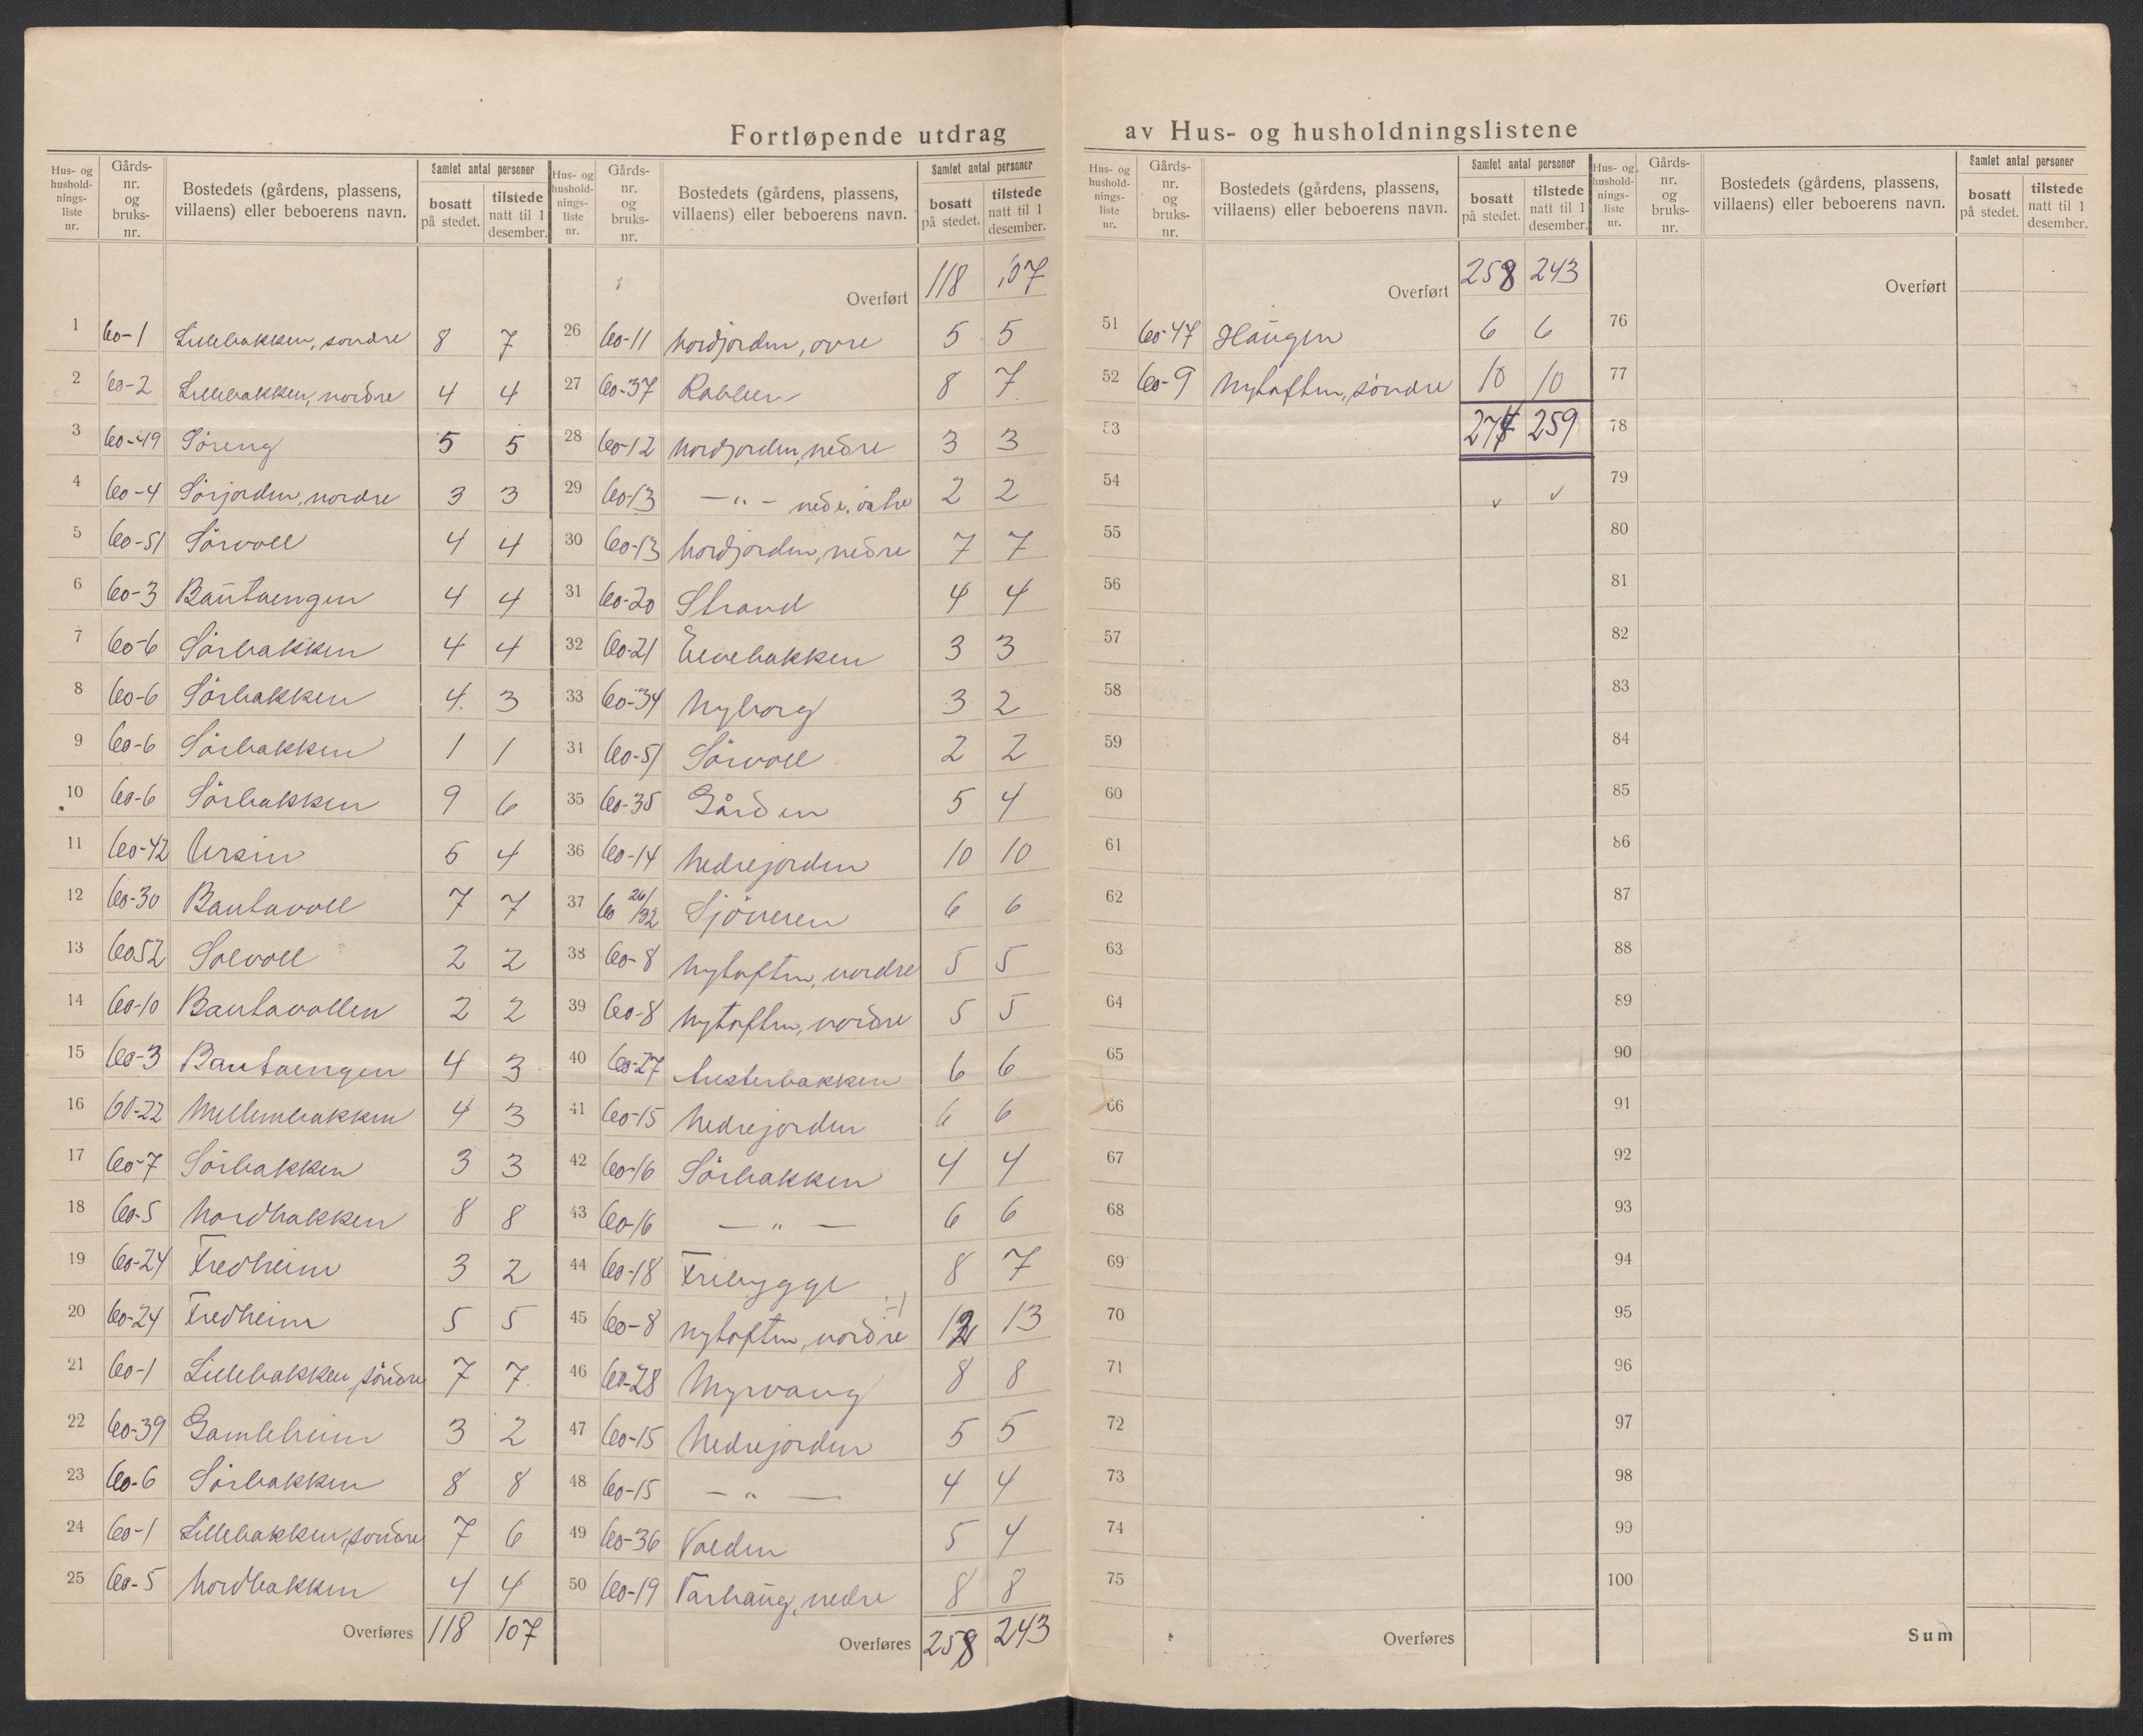 Fortløpende utdrag av Hus- og husholdningslistene
Hus- og husholdningsliste nr. | Gårds- nr. og bruks- nr. | Bostedets (gårdens, plassens, villaens) eller beboerens navn. | Samlet antal personer bosatt på stedet. | tilstede natt til 1 desember.
1 60-1 Lillebakken, søndre 8 7
2 60-2 Lillebakken, nordre 4 4
3 60-49 Søreng 5 5
4 60-4 Sørjorden, nordre 3 3
5 60-51 Sørvoll 4 4
6 60-3 Bautaengen 4 4
7 60-6 Sørbakken 4 4
8 60-6 Sørbakken 4 3
9 60-6 Sørbakken 1 1
10 60-6 Sørbakken 9 6
11 60-42 Ursin 5 4
12 60-30 Bautavoll 7 7
13 60 52 Solvoll 2 2
14 60-10 Bautavollen 2 2
15 60-3 Bautaengen 4 3
16 60-22 Mellembakken 4 3
17 60-7 Sørbakken 3 3
18 60-5 Nordbakken 8 8
19 60-24 Fredheim 3 2
20 60-24 Fredheim 5 5
21 60-1 Lillebakken, søndre 7 7
22 60-39 Gamleheim 3 2
23 60-6 Sørbakken 8 8
24 60-1 Lillebakken, søndre 7 6
25 60-5 Nordbakken 4 4
Overføres 118 107
Hus- og husholdningsliste nr. | Gårds- nr. og bruks- nr. | Bostedets (gårdens, plassens, villaens) eller beboerens navn. | Samlet antal personer bosatt på stedet. | tilstede natt til 1 desember.
Overført 118 107
26 60-11 Nordjorden, øvre 5 5
27 60-37 Rabben 8 7
28 60-12 Nordjorden, nedre 3 3
29 60-13 — " — 2 2
30 60-13 Nordjorden, nedre 7 7
31 60-20 Strand 4 4
32 60-21 Elvebakken 3 3
33 60-34 Nyborg 3 2
34 60-51 Sörvoll 2 2
35 60-35 Gården 5 4
36 60-14 Nedrejorden 10 10
37 60 26/32 6 6
38 60-8 Nytoften, nordre 5 5
39 60-8 Nytoften, nordre 5 5
40 60-27 6 6
41 60-15 Nedrejorden 6 6
42 60-16 Sörbakken 4 4
43 60-16 — " — 6 6
44 60-18 Fribygge 8 7
45 60-8 Nytoften, nordre 12 13
46 60-28 Myrvang 8 8
47 60-15 Nedrejorden 5 5
48 60-15 — " — 4 4
49 60-36 Volden 5 4
50 60-19 Varhaug, nedre 8 8
Overføres 258 243
Hus- og husholdningsliste nr. | Gårds- nr. og bruks- nr. | Bostedets (gårdens, plassens, villaens) eller beboerens navn. | Samlet antal personer bosatt på stedet. | tilstede natt til 1 desember.
Overført 258 243
51 60-47 Haugen 6 6
52 60-9 Nytoften, søndre 10 10
53 274 259
54 v v
55
56
57
58
59
60
61
62
63
64
65
66
67
68
69
70
71
72
73
74
75
Overføres
Hus- og husholdningsliste nr. | Gårds- nr. og bruks- nr. | Bostedets (gårdens, plassens, villaens) eller beboerens navn. | Samlet antal personer bosatt på stedet. | tilstede natt til 1 desember.
Overført
76
77
78
79
80
81
82
83
84
85
86
87
88
89
90
91
92
93
94
95
96
97
98
99
100
Sum